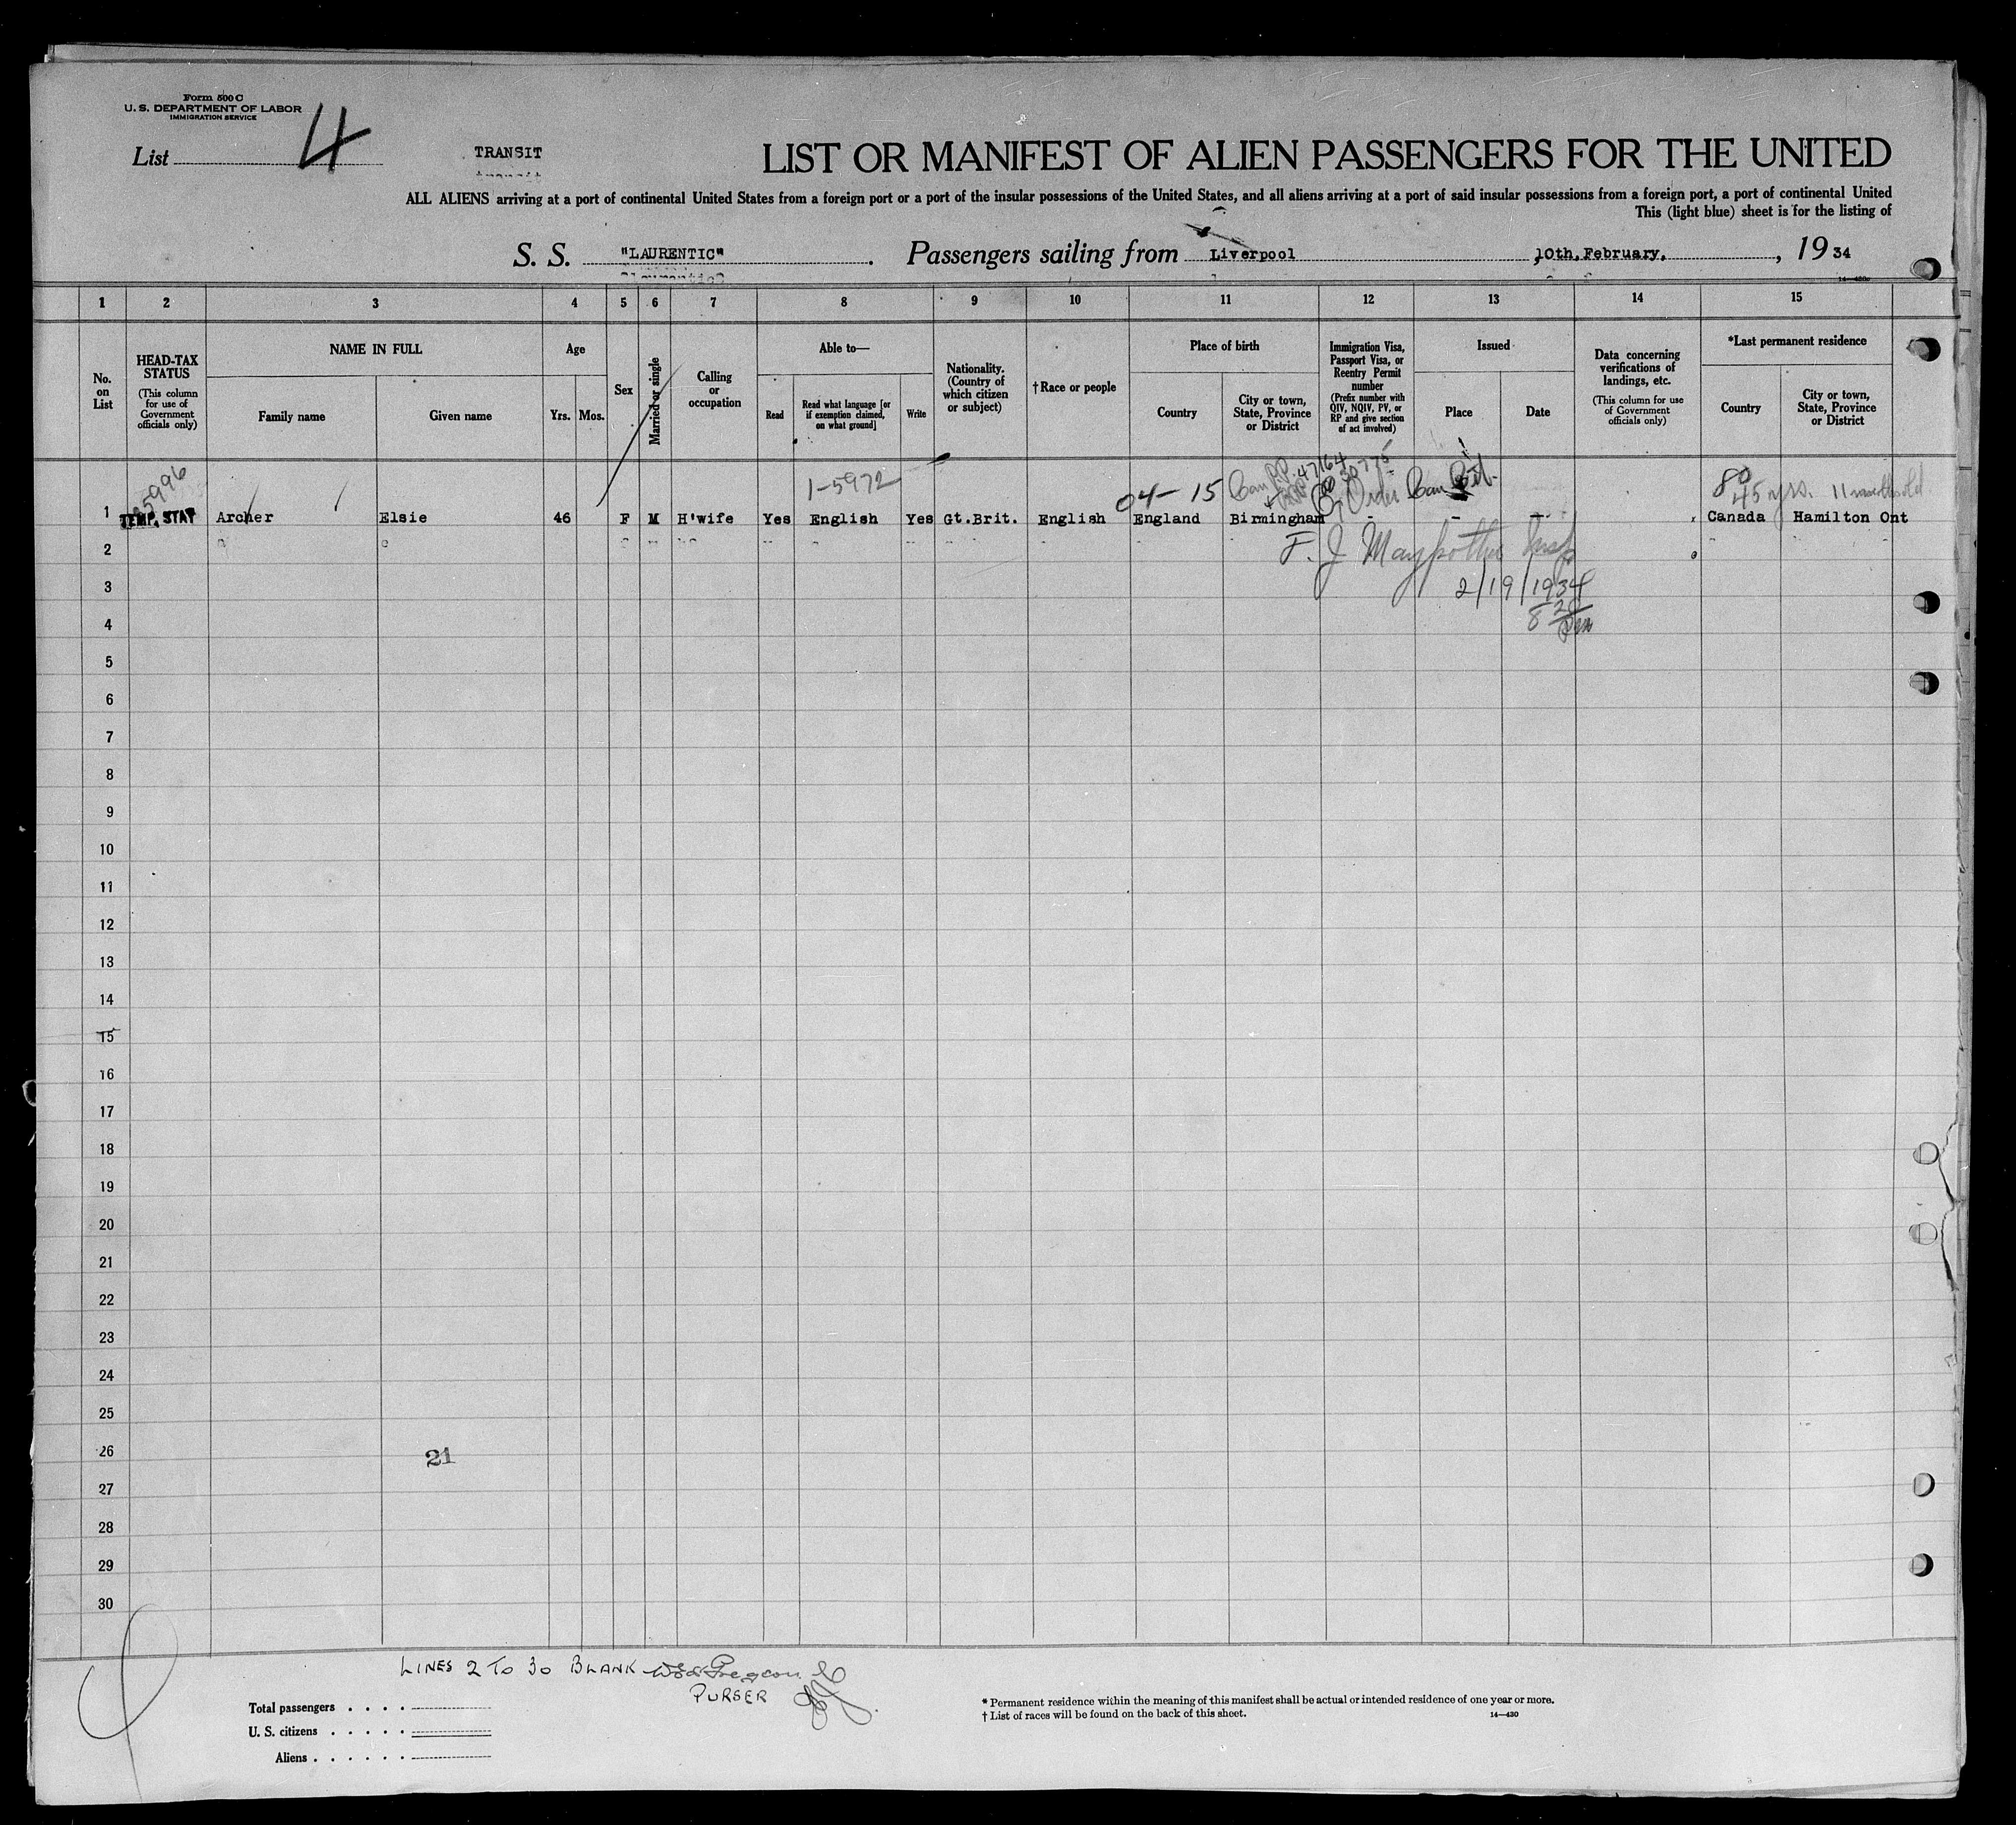 Form 500 C
U. S. DEPARTMENT OF LABOR
IMMIGRATION SERVICE
List 4
TRANSIT
LIST OR MANIFEST OF ALIEN PASSENGERS FOR THE UNITED
ALL ALIENS arriving at a port of continental United States from a foreign port or a port of the insular possessions of the United States, and all aliens arriving at a port of said insular possessions from a foreign port, a port of continental United
This (light blue) sheet is for the listing of
S. S. "LAURENTIC". Passengers sailing from Liverpool, 10th, February, , 19 34
14—430c
1 2 3 4 5 6 7 8 9 10 11 12 13 14 15
No. on List
HEAD-TAX STATUS
(This column for use of Government officials only)
NAME IN FULL
Family name
Given name
Age
Yrs.
Mos.
Sex
Married or single
Calling or occupation
Able to—
Read
Read what language [or if exemption claimed, on what ground]
Write
Nationality. (Country of which citizen or subject)
†Race or people
Place of birth
Country
City or town, State, Province or District
Immigration Visa, Passport Visa, or Reentry Permit number
(Prefix number with QIV, NQIV, PV, or RP and give section of act involved)
Issued
Place
Date
Data concerning verifications of landings, etc.
(This column for use of Government officials only)
*Last permanent residence
Country
City or town, State, Province or District
1-5972
04- 15
47164
80
45 yrs. 11 months old
1 TEMP. STAT Archer Elsie 46 F M H'wife Yes English Yes Gt.Brit. English England Birmingham - - - Canada Hamilton Ont
2
3 2/19/1934
4
5
6
7
8
9
10
11
12
13
14
15
16
17
18
19
20
21
22
23
24
25
26 21
27
28
29
30
LINES 2 TO 30 BLANK
PURSER
Total passengers . . . .
U. S. citizens . . . . .
Aliens . . . . . .
* Permanent residence within the meaning of this manifest shall be actual or intended residence of one year or more.
† List of races will be found on the back of this sheet.
14—430